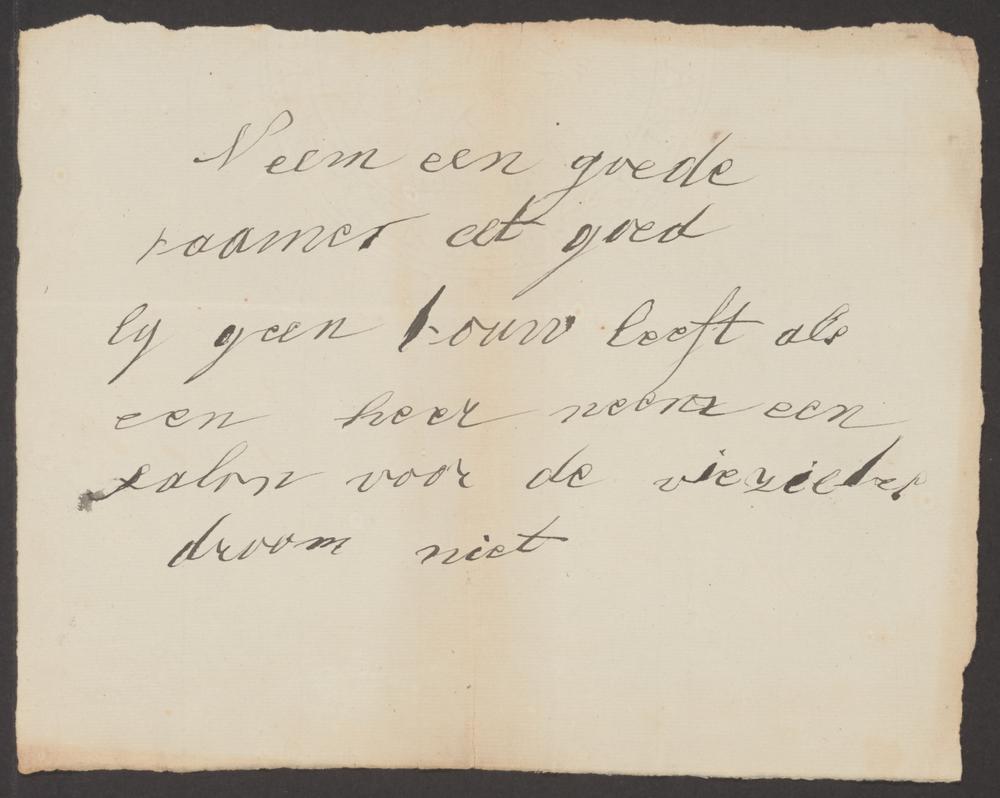 Neem een goede
kaamer eet goed
ly geen kouw leeft als
een heer neem een
salon voor de viezietes
droom niet